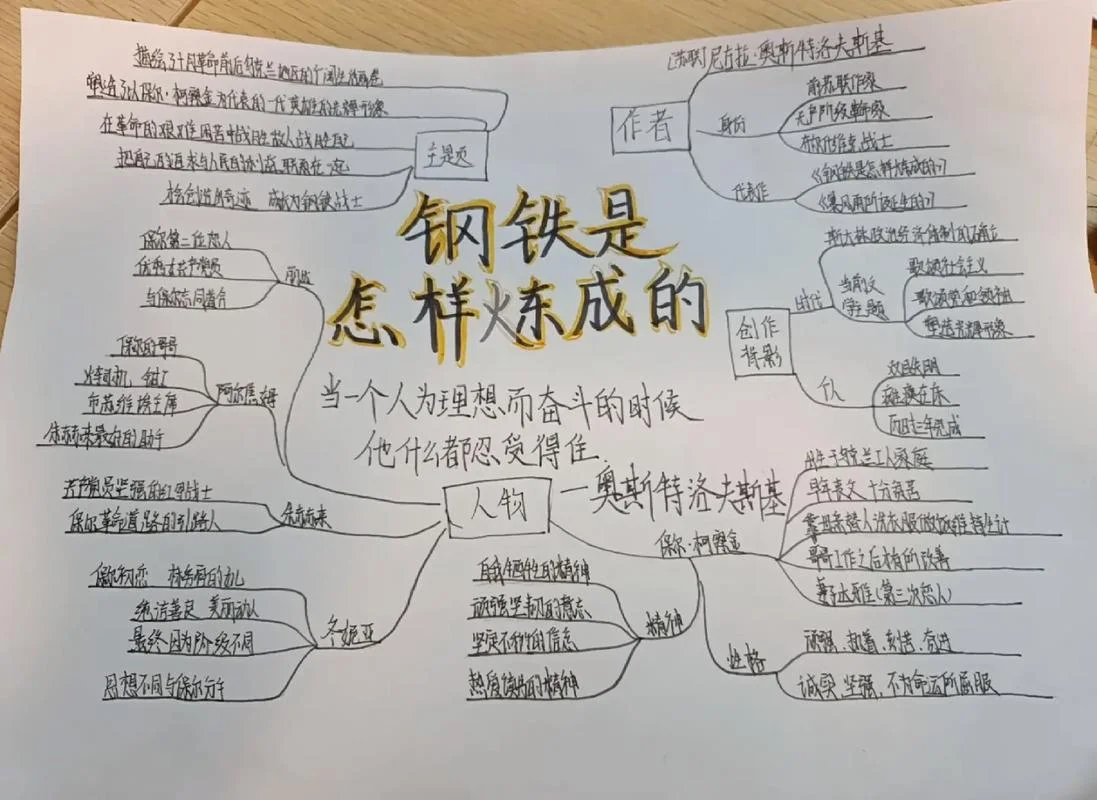 钢铁是
怎样炼成的
当一个人为理想而奋斗的时候
他什么都忍受得住.
—奥斯特洛夫斯基
主题
描绘了十月革命前后乌克兰地区的广阔生活画卷
塑造了以保尔·柯察金为代表的一代英雄的光辉形象
在革命的艰难困苦中战胜敌人战胜自己
把自己的追求与人民的利益联系在一起
会创造出奇迹 成长为钢铁战士
作者
[苏联]尼古拉·奥斯特洛夫斯基
身份
前苏联作家
无产阶级革命家
布尔什维克战士
代表作
《钢铁是怎样炼成的》
《暴风雨所诞生的》
创作
背影
时代
斯大林政治经济体制的确立
当前文
学主题
歌颂社会主义
歌颂党和领袖
塑造光辉形象
个人
双目失明
瘫痪在床
历时三年完成
人物
丽达
保尔第二任恋人
优秀共产党员
与保尔志同道合
阿尔焦姆
保尔的哥哥
火车司机、钳工
市苏维埃主席
朱赫来最好的助手
朱赫来
共产党员坚强的红军战士
保尔革命道路的引路人
冬妮亚
保尔初恋 林务官的女儿
纯洁善良 美丽动人
最终因为阶级不同
思想不同与保尔分手
保尔·柯察金
出生于乌克兰工人家庭
早年丧父 十分贫苦
靠母亲替人洗衣服做饭维持生计
哥哥工作之后有所改善
妻子达雅(第三次恋人)
精神
自我牺牲的精神
顽强坚韧的意志
坚定不移的信念
热爱 的精神
性格
顽强、执着、刻苦、奋进
诚实、坚强、不为命运所屈服